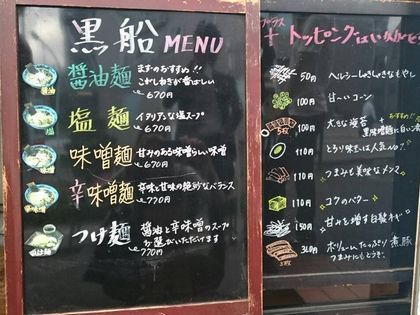 黒船 MENU
醤油麺
まずのおすすめ!!
こがしねぎが香ばしい
670円
醤油
塩麺
イタリアンな塩スープ
670円
塩
味噌麺
甘みのある味噌らしい味噌
670円
味噌
辛味噌麺
辛味と甘味の絶妙なバランス
770円
辛味噌
つけ麺
醤油と辛味噌のスープ
が選びいただけます
770円
つけ麺
プラス
+ トッピングはいかがで
50円 ヘルシーしゃきしゃきなもやし
100円 甘〜いコーン
5枚 100円 大きな海苔
おすすめ!
黒味噌麺と
110円 とろり味玉は人気No.1
110円 つまみも美味なメンマ
110円 コクのバター
150円 甘みを増す白髪ネギ
3枚 340円 ボリュームたっぷり煮豚
つまみにもどうぞ。